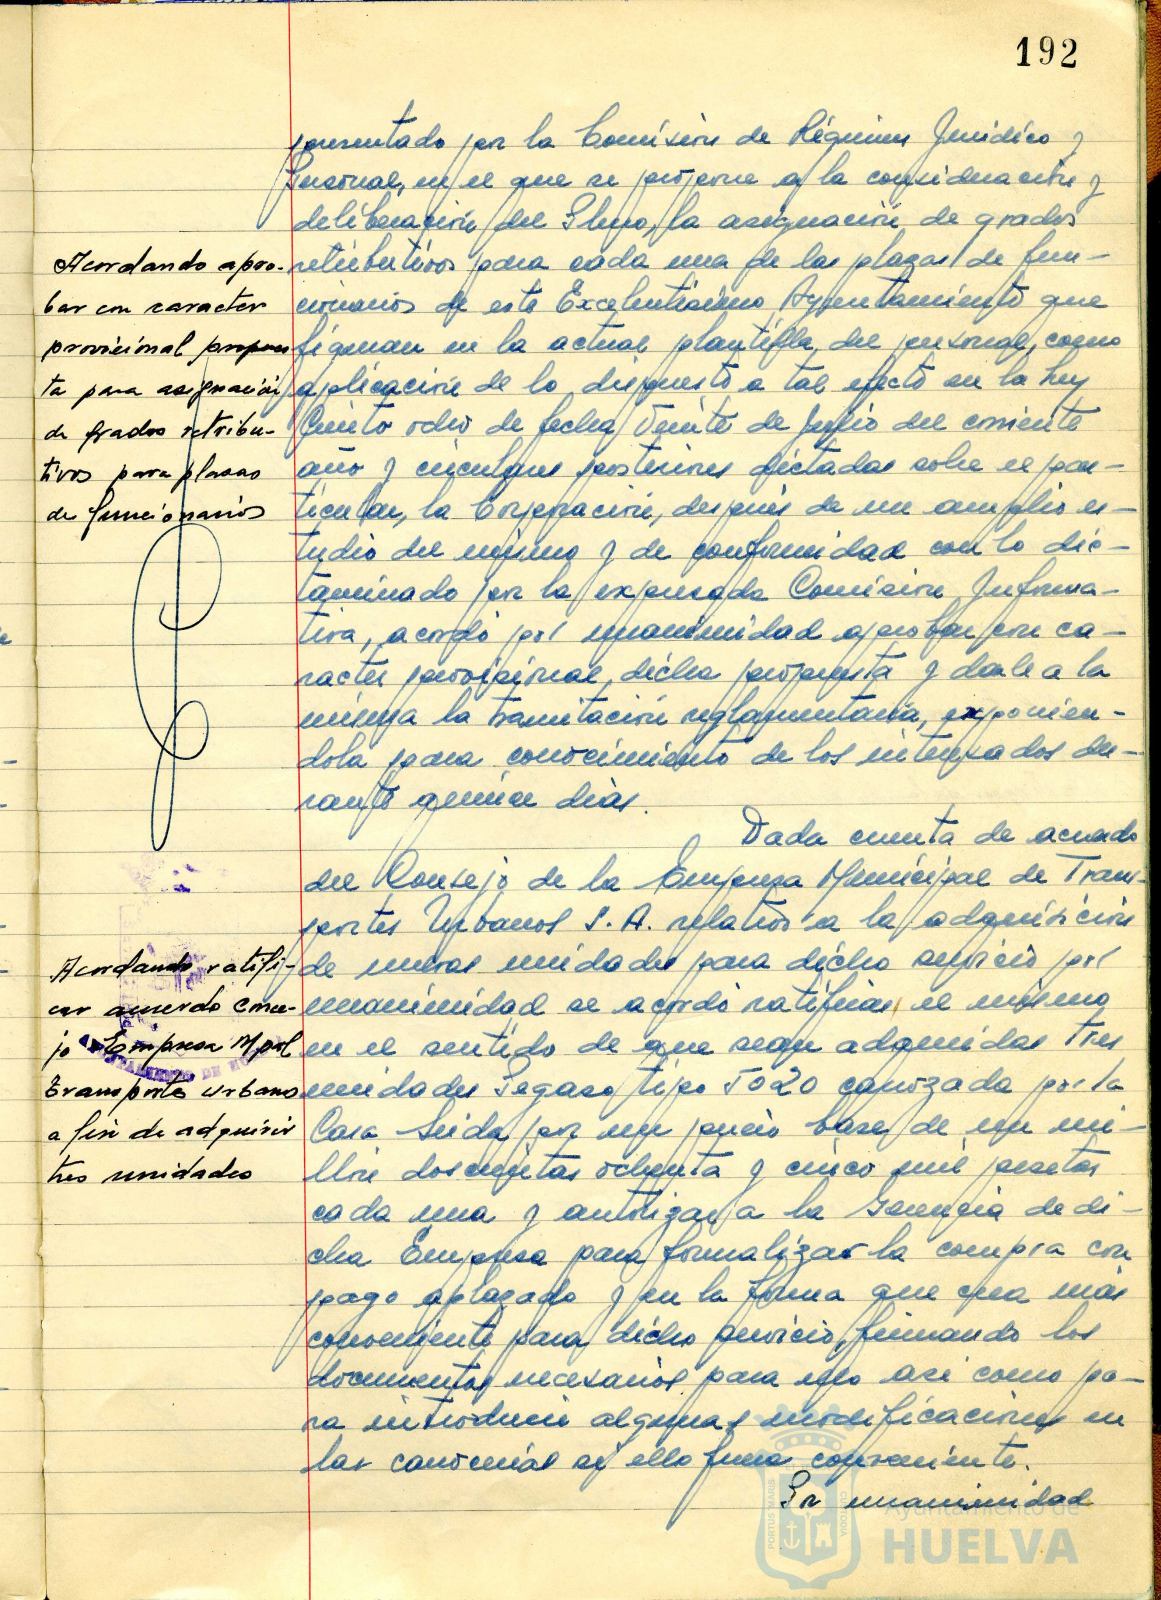 192
presentado por la Comisión de Régimen Jurídico y
Personal, en el que se propone a la consideración y
deliberación del Pleno, la asignación de grados
Acordando apro-
bar con caracter
provicional propues
ta para asignación
de grados retribu-
tivos para plasas
de funcionarios
retributivos para cada una de las plazas de fun-
cionarios de este Excelentísimo Ayuntamiento que
figuran en la actual plantilla del personal, como
aplicación de lo dispuesto a tal efecto en la Ley
Ciento ocho de fecha Veinte de Julio del corriente
año y circulares posteriores dictadas sobre el par-
ticular, la Corporación, después de un amplio es-
tudio del mismo y de conformidad con lo dic-
taminado por la expresada Comisión Informa-
tiva, acordó por unanimidad aprobar con ca-
racter provisional dicha propuesta y darle a la
misma la tramitación reglamentaria, exponien-
dola para conocimiento de los interesados du-
rante quince dias.
Dada cuenta de acuerdo
del Consejo de la Empresa Municipal de Trans-
portes Urbanos S. A. relativo a la adquisición
Acordando ratifi-
car acuerdo Conse-
jo Empresa Mpal
Transporte Urbano
a fin de adquirir
tres unidades
de nuevas unidades para dicho servicio por
unanimidad se acordó ratificar el mismo
en el sentido de que sean adquiridas Tres
unidades Pegaso tipo 5020 carrozada por la
Casa Seida por un precio base de un mi-
llón doscientas ochenta y cinco mil pesetas
cada una y autorizar a la Gerencia de di-
cha Empresa para formalizar la compra con
pago aplazado y en la forma que crea más
conveniente para dicho servicio, firmando los
documentos necesarios para ello asi como pa-
ra introducir algunas modificaciones en
las carrocerías si ello fuera conveniente.
Por unanimidad
PORTUS MARIS
CUSTODIA
Ayuntamiento de
HUELVA